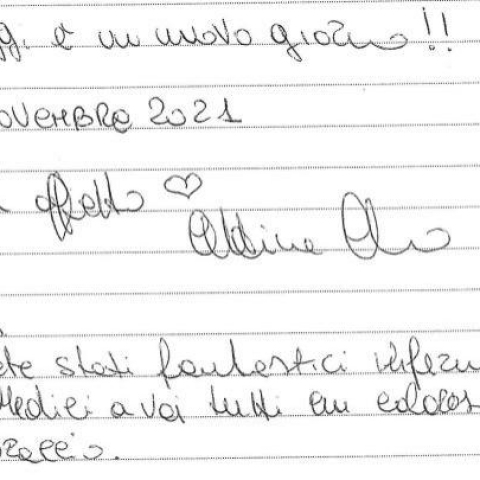 ggi è un nuovo giorno!!
OVEMBRE 2021
affetto ♡
ete stati fantastici infermi
Medici a voi tutti un coloss
braccio.